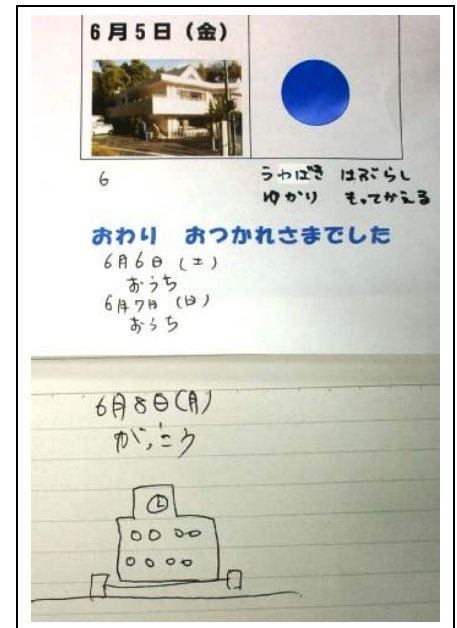 6月5日（金）
6
うわばき はぶらし
ゆかり もってかえる
おわり おつかれさまでした
6月6日（土）
おうち
6月7日（日）
おうち
6月8日（月）
がっこう